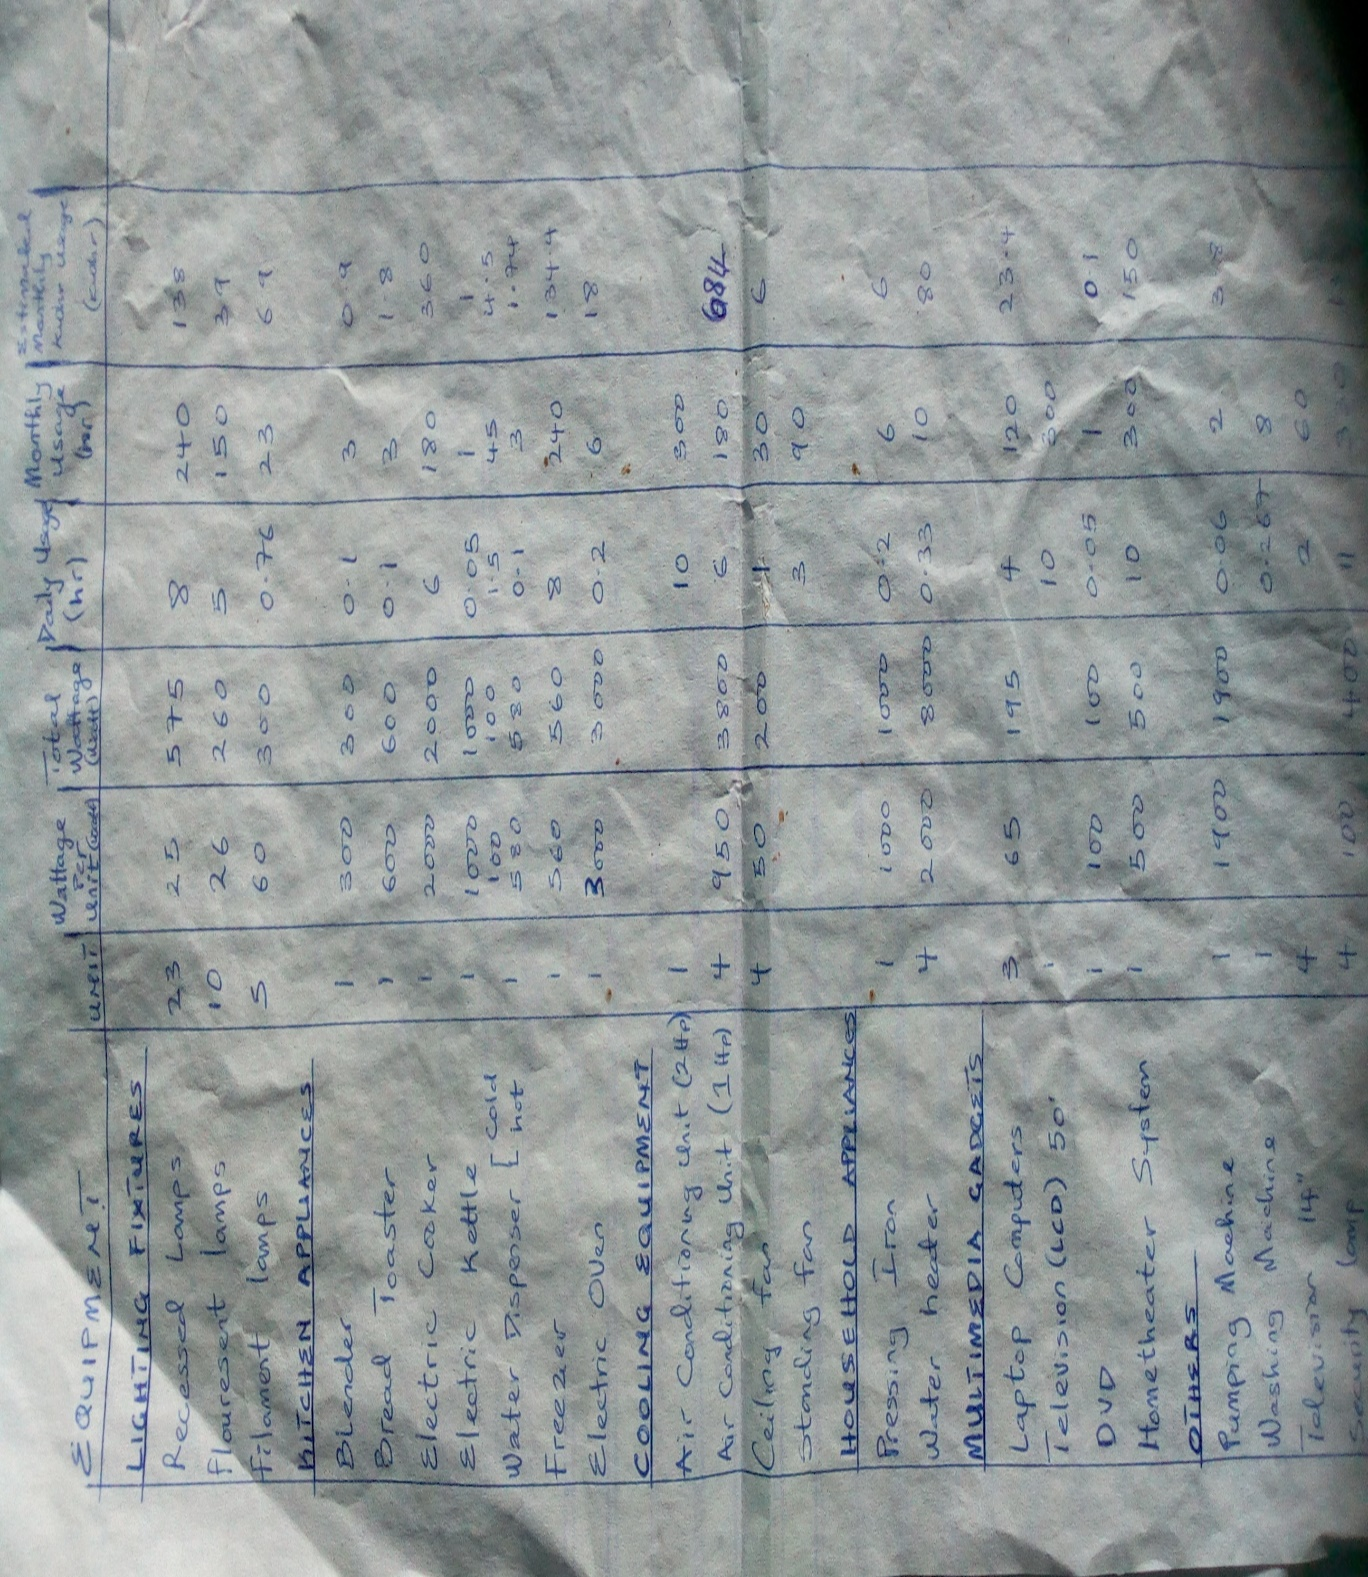 EQUIPMENT | UNIT | Wattage Per Unit (watt) | Total Wattage (watt) | Daily Usage (hr) | Monthly Usage (hr) | Estimated Monthly kwhr usage (kwhr)
LIGHTING FIXTURES
Recessed Lamps 23 25 575 8 240 138
Flouresent lamps 10 26 260 5 150 39
Filament lamps 5 60 300 0.76 23 69
KITCHEN APPLIANCES
Blender 1 300 300 0.1 3 0.9
Bread Toaster 1 600 600 0.1 3 1.8
Electric Cooker 1 2000 2000 6 180 360
Electric Kettle 1 1000 1000 0.05 1 1
Water Disperser [ Cold 100 100 1.5 45 4.5
hot 1 580 580 0.1 3 1.74
Freezer 1 560 560 8 240 134.4
Electric Oven 1 3000 3000 0.2 6 18
COOLING EQUIPMENT
Air Conditioning Unit (2Hp) 1 10 300
Air Conditioning Unit (1Hp) 4 950 3800 6 180 684
Ceiling fan 4 50 200 1 30 6
Standing fan 3 90
HOUSEHOLD APPLIANCES
Pressing Iron 1 1000 1000 0.2 6 6
Water heater 4 2000 8000 0.33 10 80
MULTIMEDIA GADGETS
Laptop Computers 3 65 195 4 120 23.4
Television (LCD) 50' 1 10 300
DVD 1 100 100 0.05 1 0.1
Hometheater System 1 500 500 10 300 150
OTHERS
Pumping Machine 1 1900 1900 0.06 2 3.8
Washing Machine 1 0.267 8
Television 14" 4 2 60
Security lamp 4 100 400 11 330